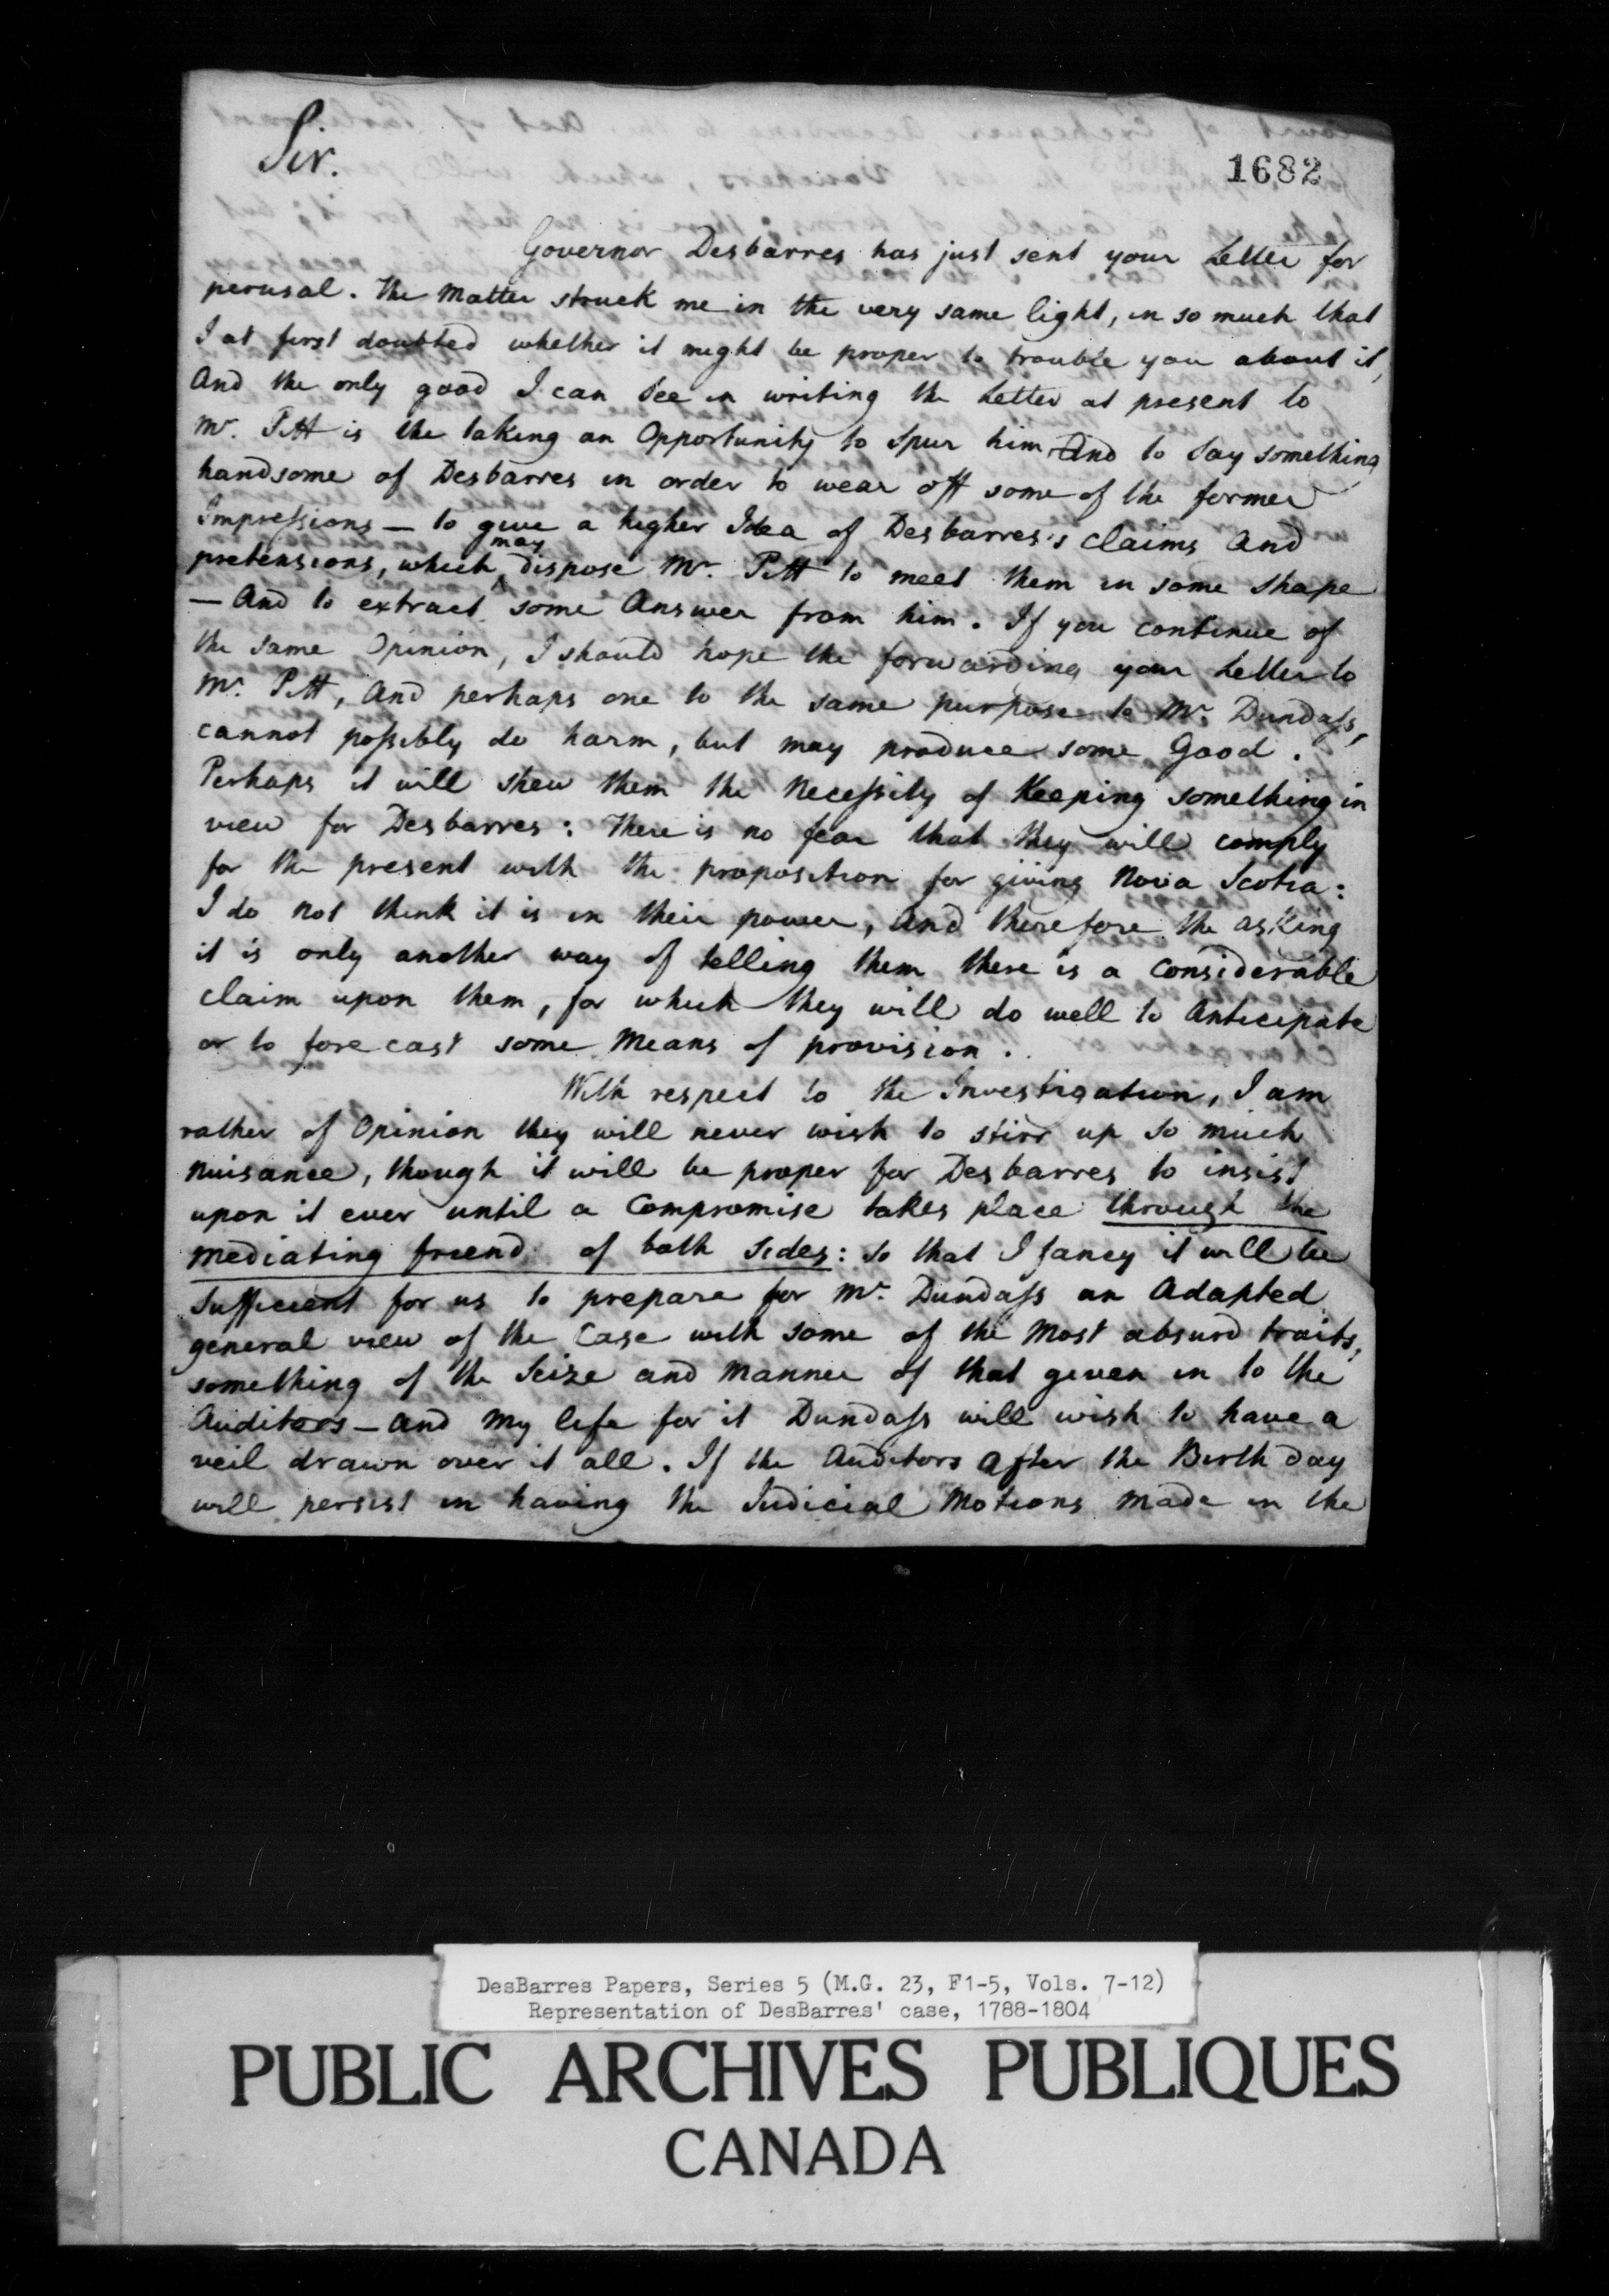 Sir.
1682
Governor Desbarres has just sent your Letter for
perusal. The Matter struck me in the very same light, in so much that
I at first doubted whether it might be proper to trouble you about it,
And the only good I can see in writing the Letter at present to
Mr. Pitt is the taking an Opportunity to spur him, And to say something
handsome of Desbarres in order to wear off some of the former
Impressions — to give a higher Idea of Desbarres's claims And
pretensions, which may dispose Mr. Pitt to meet them in some shape
— And to extract some Answer from him. If you continue of
the same Opinion, I should hope the forwarding your Letter to
Mr. Pitt, And perhaps one to the same purpose to Mr. Dundass,
cannot possibly do harm, but may produce some Good.
Perhaps it will shew them the Necessity of Keeping something in
view for Desbarres: There is no fear that they will comply
for the present with the proposition for giving Nova Scotia:
I do not think it is in their power, And therefore the asking
it is only another way of telling them there is a Considerable
Claim upon them, for which they will do well to Anticipate
or to fore cast some Means of provision.
With respect to the Investigation, I am
rather of Opinion they will never wish to stirr up so much
Nuisance, though it will be proper for Desbarres to insist
upon it ever until a Compromise takes place through the
Mediating friend of both sides: so that I fancy it will be
Sufficient for us to prepare for Mr. Dundass an Adapted
general view of the Case with some of the Most absurd traits,
something of the Seize and Manner of that given in to the
Auditors — and My life for it Dundass will wish to have a
veil drawn over it all. If the Auditors After the Birth day
will persist in having the Judicial Motions Made in the
DesBarres Papers, Series 5 (M.G. 23, F1-5, Vols. 7-12)
Representation of DesBarres' case, 1788-1804
PUBLIC ARCHIVES PUBLIQUES
CANADA